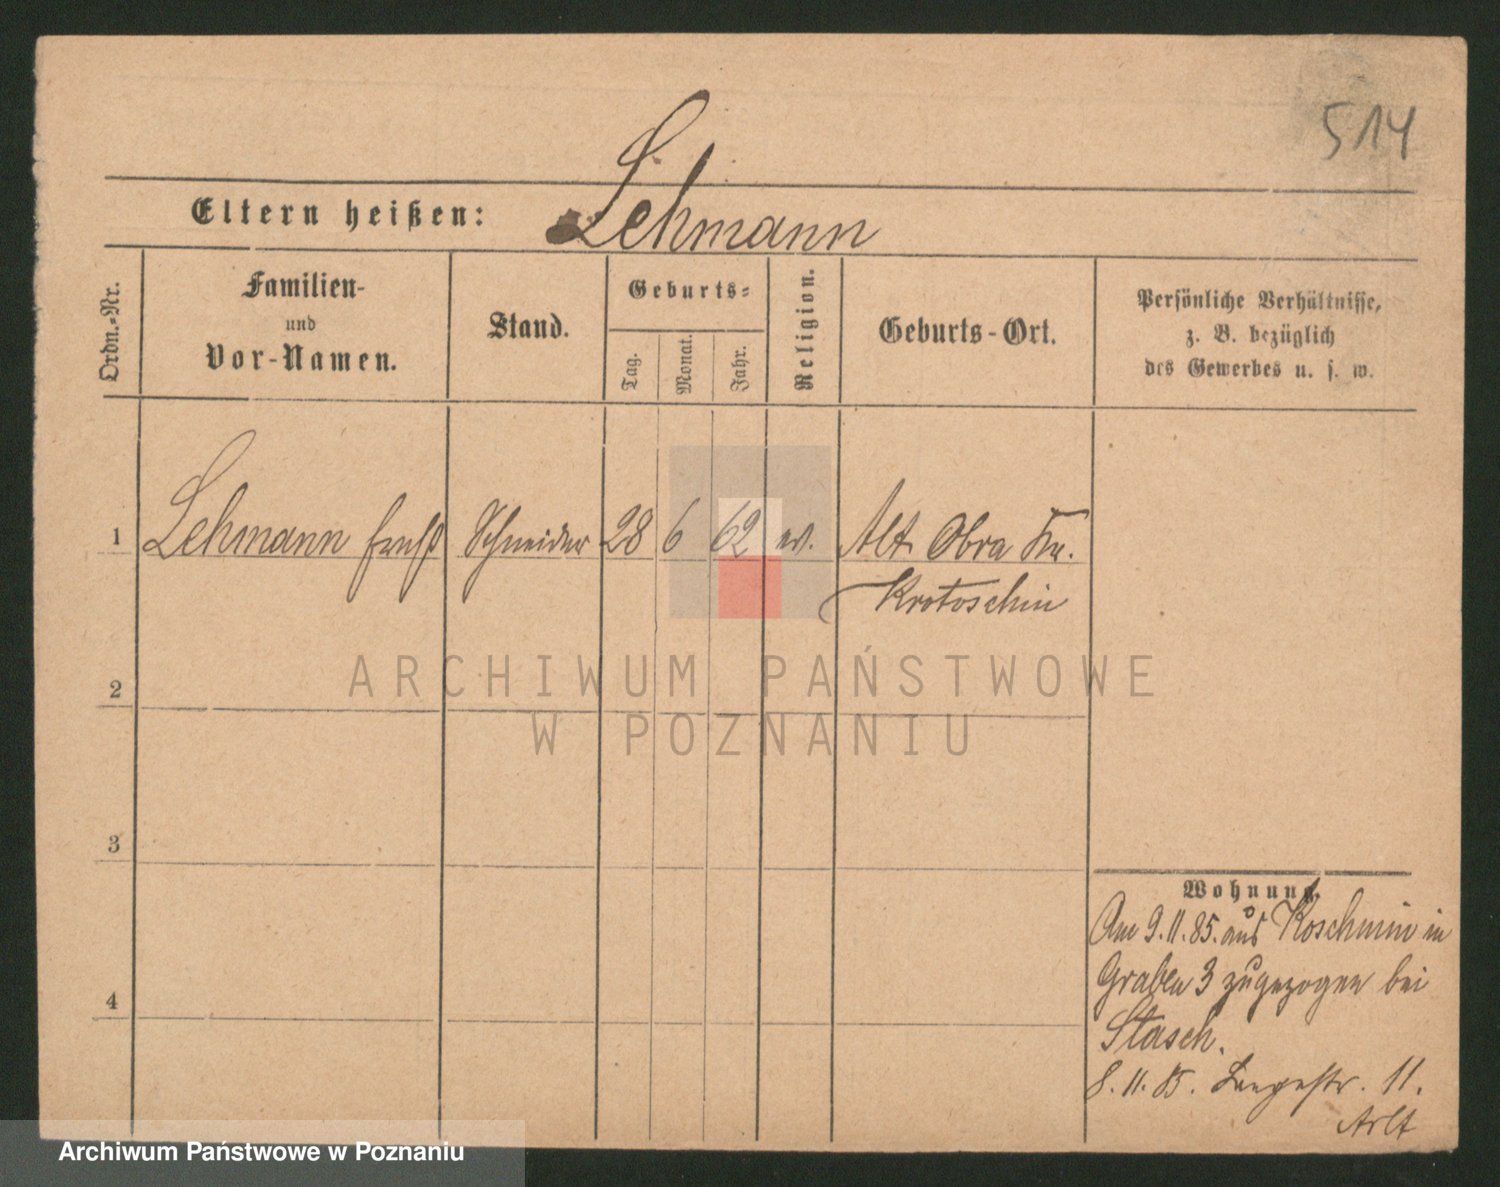 514
Eltern heißen: Lehmann
Ordn.-Nr.
Familien-
und
Vor-Namen.
Stand.
Geburts-
Tag.
Monat.
Jahr.
Religion.
Geburts-Ort.
Persönliche Verhältnisse,
z. B. bezüglich
des Gewerbes u. s. w.
1 Lehmann Ernst Schneider 28 6 62 ev. Alt Obra Kr.
Krotoschin
2
3
4
Wohnung.
Am 9.11.85. aus Koschmin in
Graben 3 zugezogen bei
Stasch.
8.11.85. Langestr. 11.
Arlt
ARCHIWUM PAŃSTWOWE
W POZNANIU
Archiwum Państwowe w Poznaniu